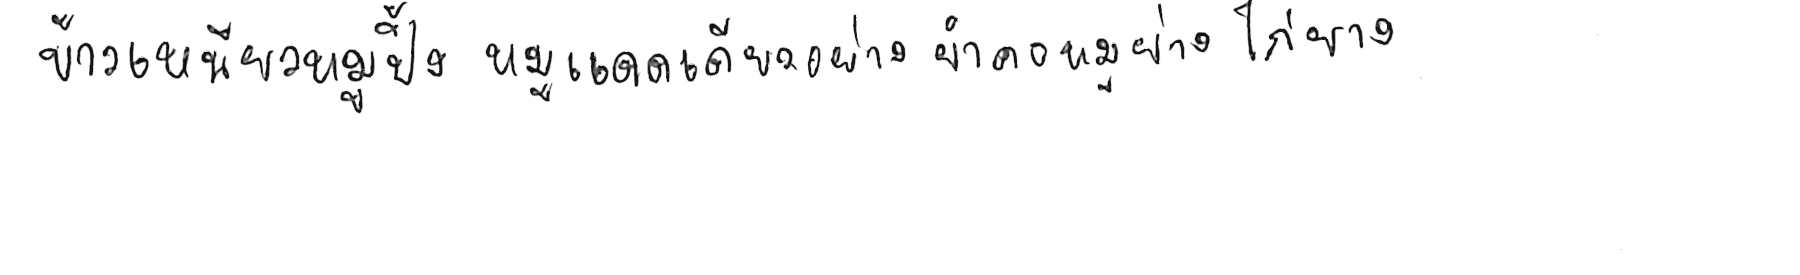 ข้าวเหนียวหมูปิ้ง หมูแดดเดียวอย่าง ยำคอหมูย่าง ไก่ยาง